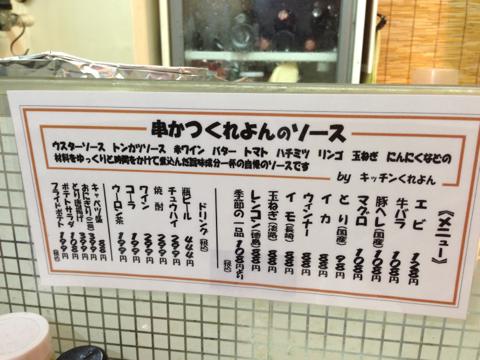 串かつくれよんのソース
ウスターソース トンカツソース 赤ワイン バター トマト ハチミツ リンゴ 玉ねぎ にんにくなどの
材料をゆっくりと時間をかけて煮込んだ旨味成分一杯の自慢のソースです
by キッチンくれよん
《メニュー》
エビ 138円
牛バラ 108円
豚ヘレ(国産) 108円
マグロ 108円
とり(国産) 98円
イカ 98円
ウィンナー 88円
イモ(長崎) 88円
玉ねぎ(淡路) 88円
レンコン(徳島) 88円
季節の一品 108円より
(税込)
ドリンク(税込)
瓶ビール 444円
チュウハイ 299円
焼酎 299円
ワイン 299円
コーラ 199円
ウーロン茶 199円
キャベツ盛 88円
おにぎり
とり唐揚げ 399円
ポテトサラダ 199円
フライドポテト 199円
(税込)